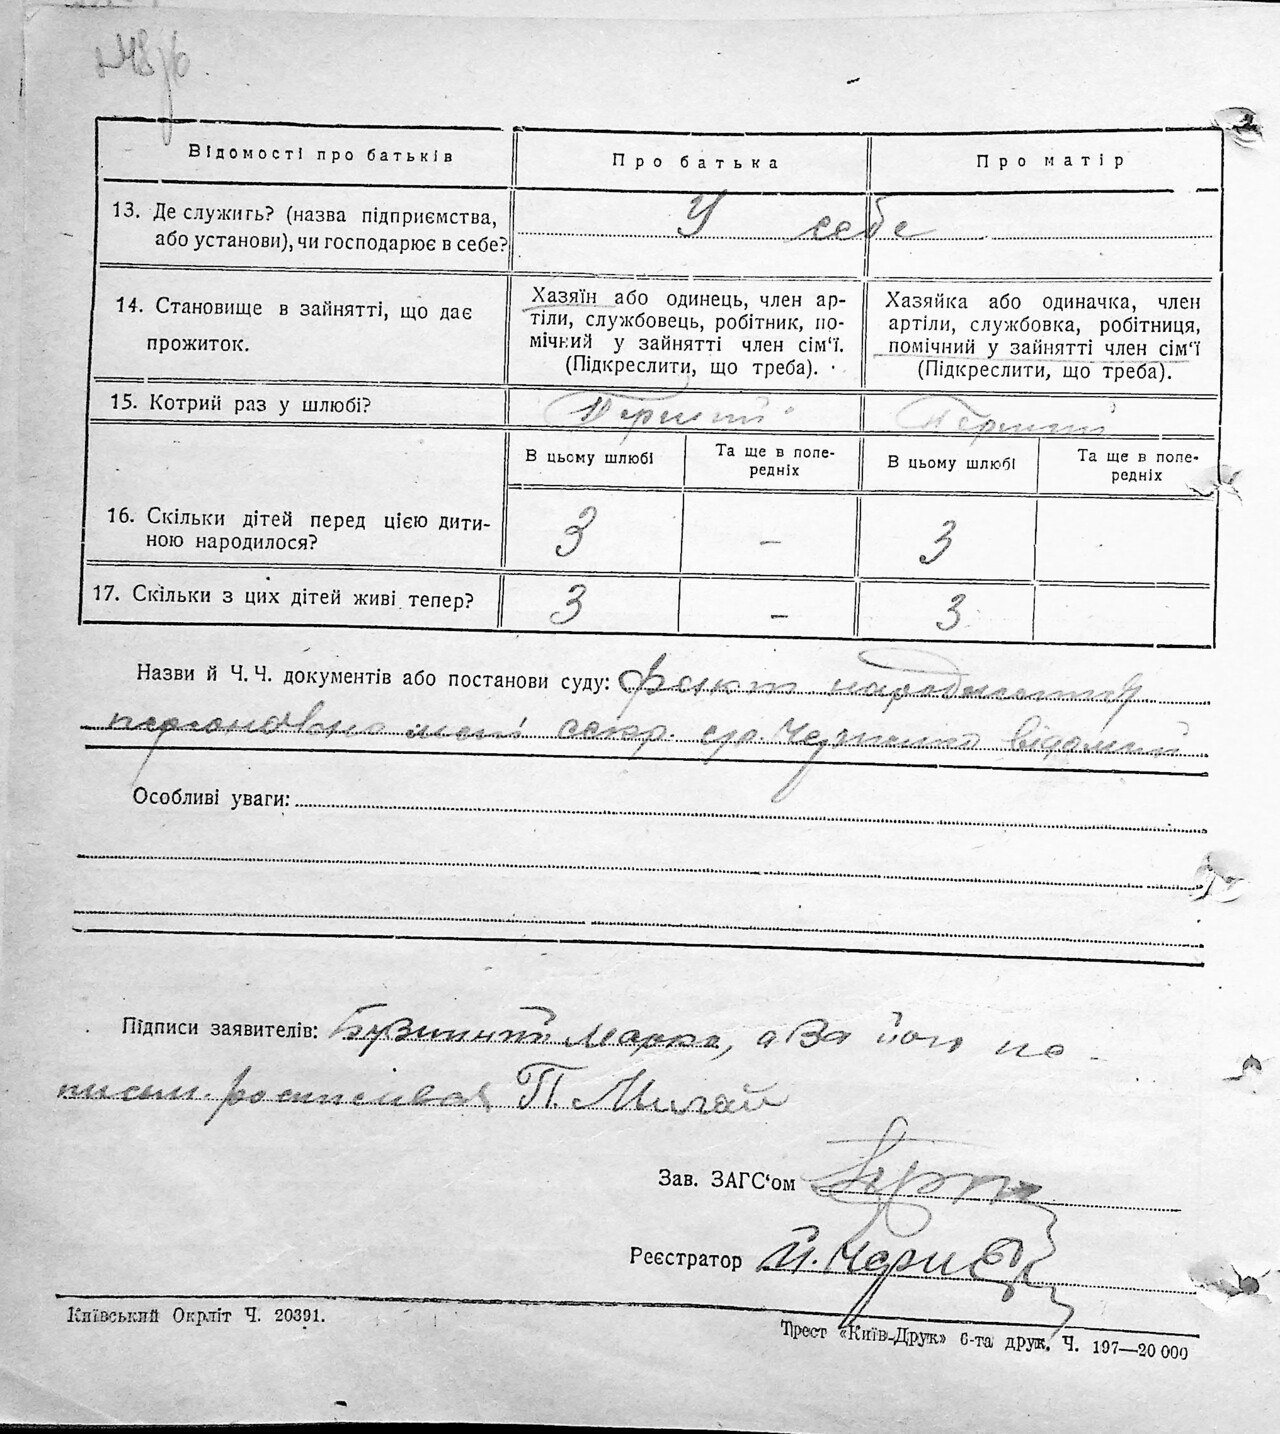 Відомості про батьків
Про батька
Про матір
13. Де служить? (назва підприємства,
або установи), чи господарює в себе?
У себе
14. Становище в зайнятті, що дає
прожиток.
Хазяїн або одинець, член ар-
тілі, службовець, робітник, по-
мічний у зайнятті член сім‘ї.
(Підкреслити, що треба).
Хазяйка або одиначка, член
артіли, службовка, робітниця,
помічний у зайнятті член сім‘ї
(Підкреслити, що треба).
15. Котрий раз у шлюбі?
Перший
Перший
В цьому шлюбі
Та ще в попе-
редніх
В цьому шлюбі
Та ще в попе-
редніх
16. Скільки дітей перед цією дити-
ною народилося?
3
–
3
17. Скільки з цих дітей живі тепер?
3
–
3
Назви й Ч. Ч. документів або постанови суду: факт народження
персонально мені секр. с/р. відомий
Особливі уваги:
Підписи заявителів: Марко, а за його не
письм. П. Мигай
Зав. ЗАГС‘ом
Реєстратор
Київський Окрліт Ч. 20391.
Трест «Київ-Друк» 6-та друк. Ч. 197—20 000